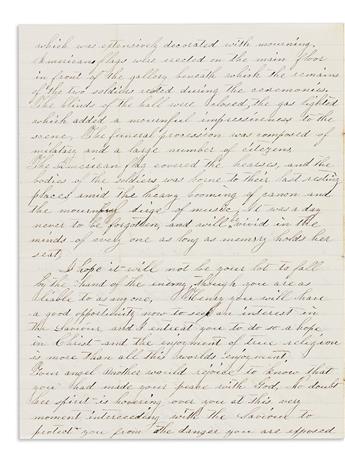 which was extensively decorated with mourning.
Americans flags were erected on the main floor
in front of the gallery beneath which the remains
of the two soldiers rested during the ceremonies.
The blinds of the hall were closed, the gas lighted
which added a mournful impressiveness to the
scene. The funeral procession was composed of
military and a large number of citizens
The American flag covered the hearses, and the
bodies of the soldiers was borne to their last resting
places amid the heavy booming of canon and
the mournful dirge of music. It was a day
never to be forgotten, and will vivid in the
minds of every one as long as memory holds her
seat,
I hope it will not be your lot to fall
by the hand of the enemy though you are as
liable to as any one, Henry you will have
a good opportunity now to seek an interest in
the Saviour and I entreat you to do so a hope
in Christ and the enjoyment of true religion
is more than all this worlds enjoyment,
Your angel Mother would rejoice to know that
you had made your peace with God, no doubt
her spirit is hovering over you at this very
moment interceeding with the Saviour to
protect you from the danger you are exposed